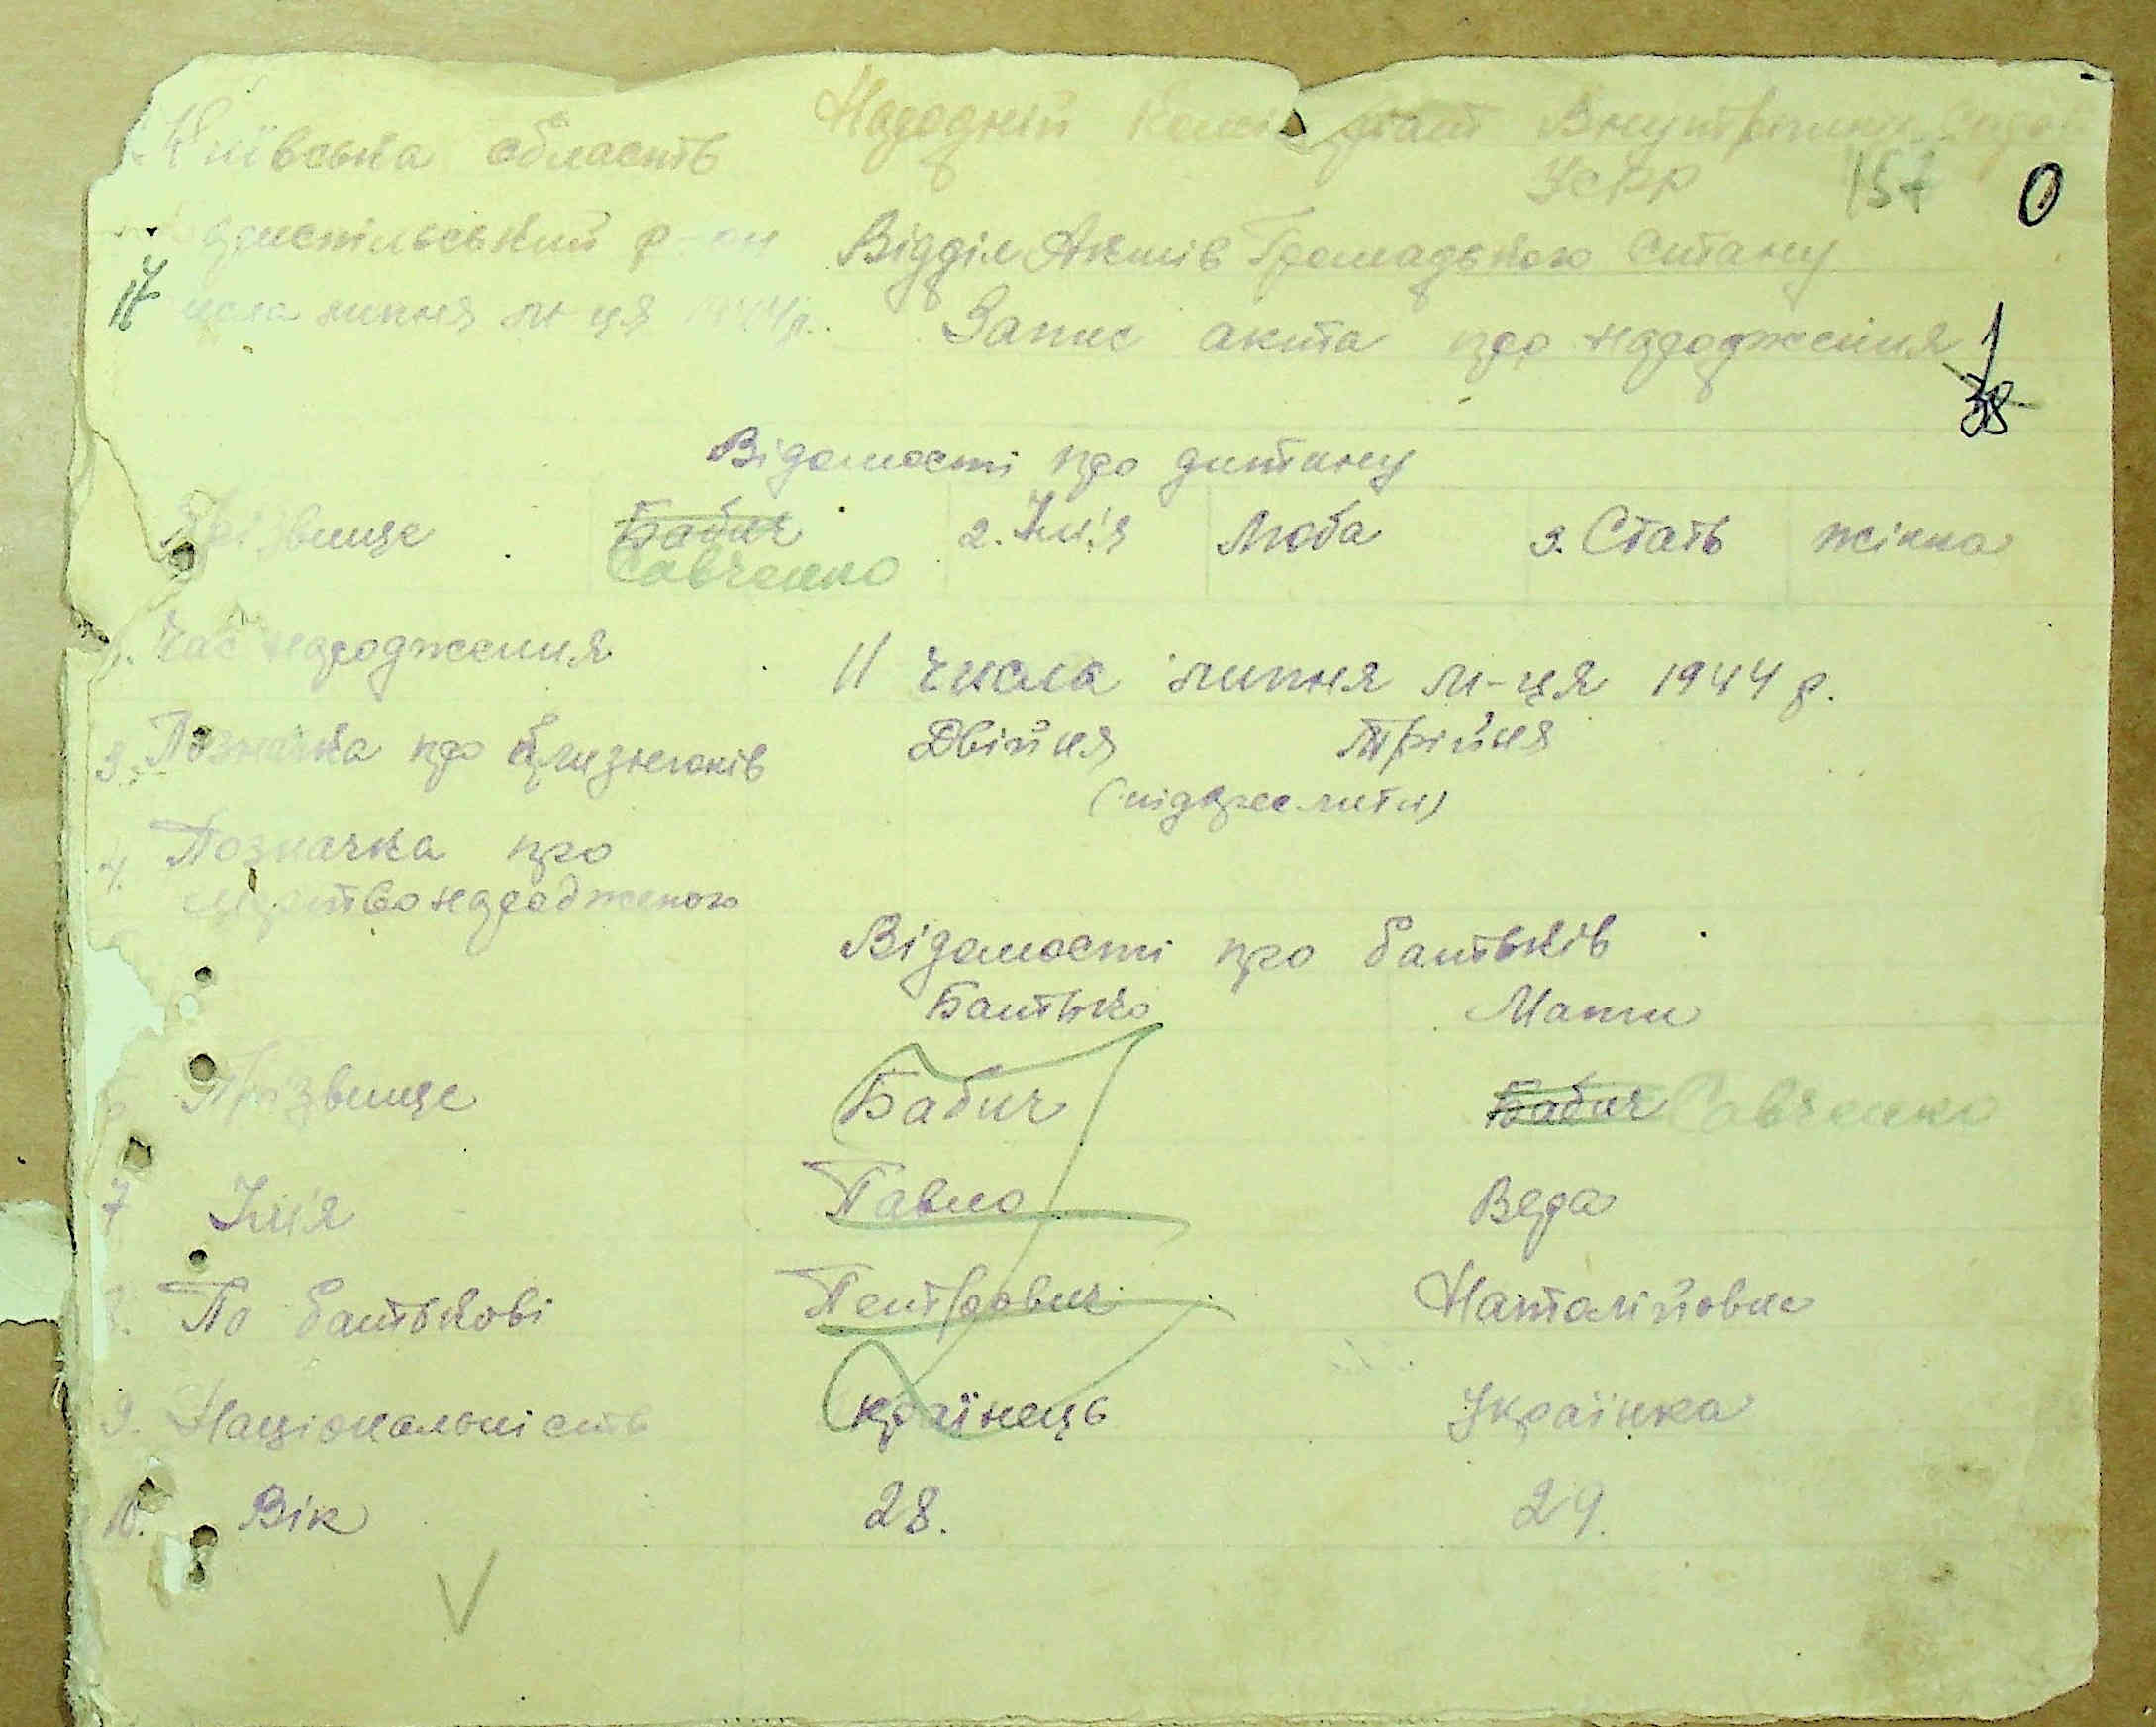 Київська область Народній Комісаріат Внутрішніх Справ
УСРР 157 0
р-он Відділ Актів Громадького Стану
17 числа липня м-ця 1944 р. Запис акта про народження
38
Відомості про дитину
Прізвище Бабич 2. Ім'я Люба 3. Стать жінка
Савченко
Час народження 11 числа липня м-ця 1944 р.
3. Позначка про близнюків Двійня Трійня
(підкреслити)
4. Позначка про
народженого
Відомості про батьків
Батько Мати
Прізвище Бабич Бабич Савченко
7 Ім'я Павло Вера
8. По батькові Петрович Наталійовна
9. Національність країнець Українка
10. Вік 28. 29.
V